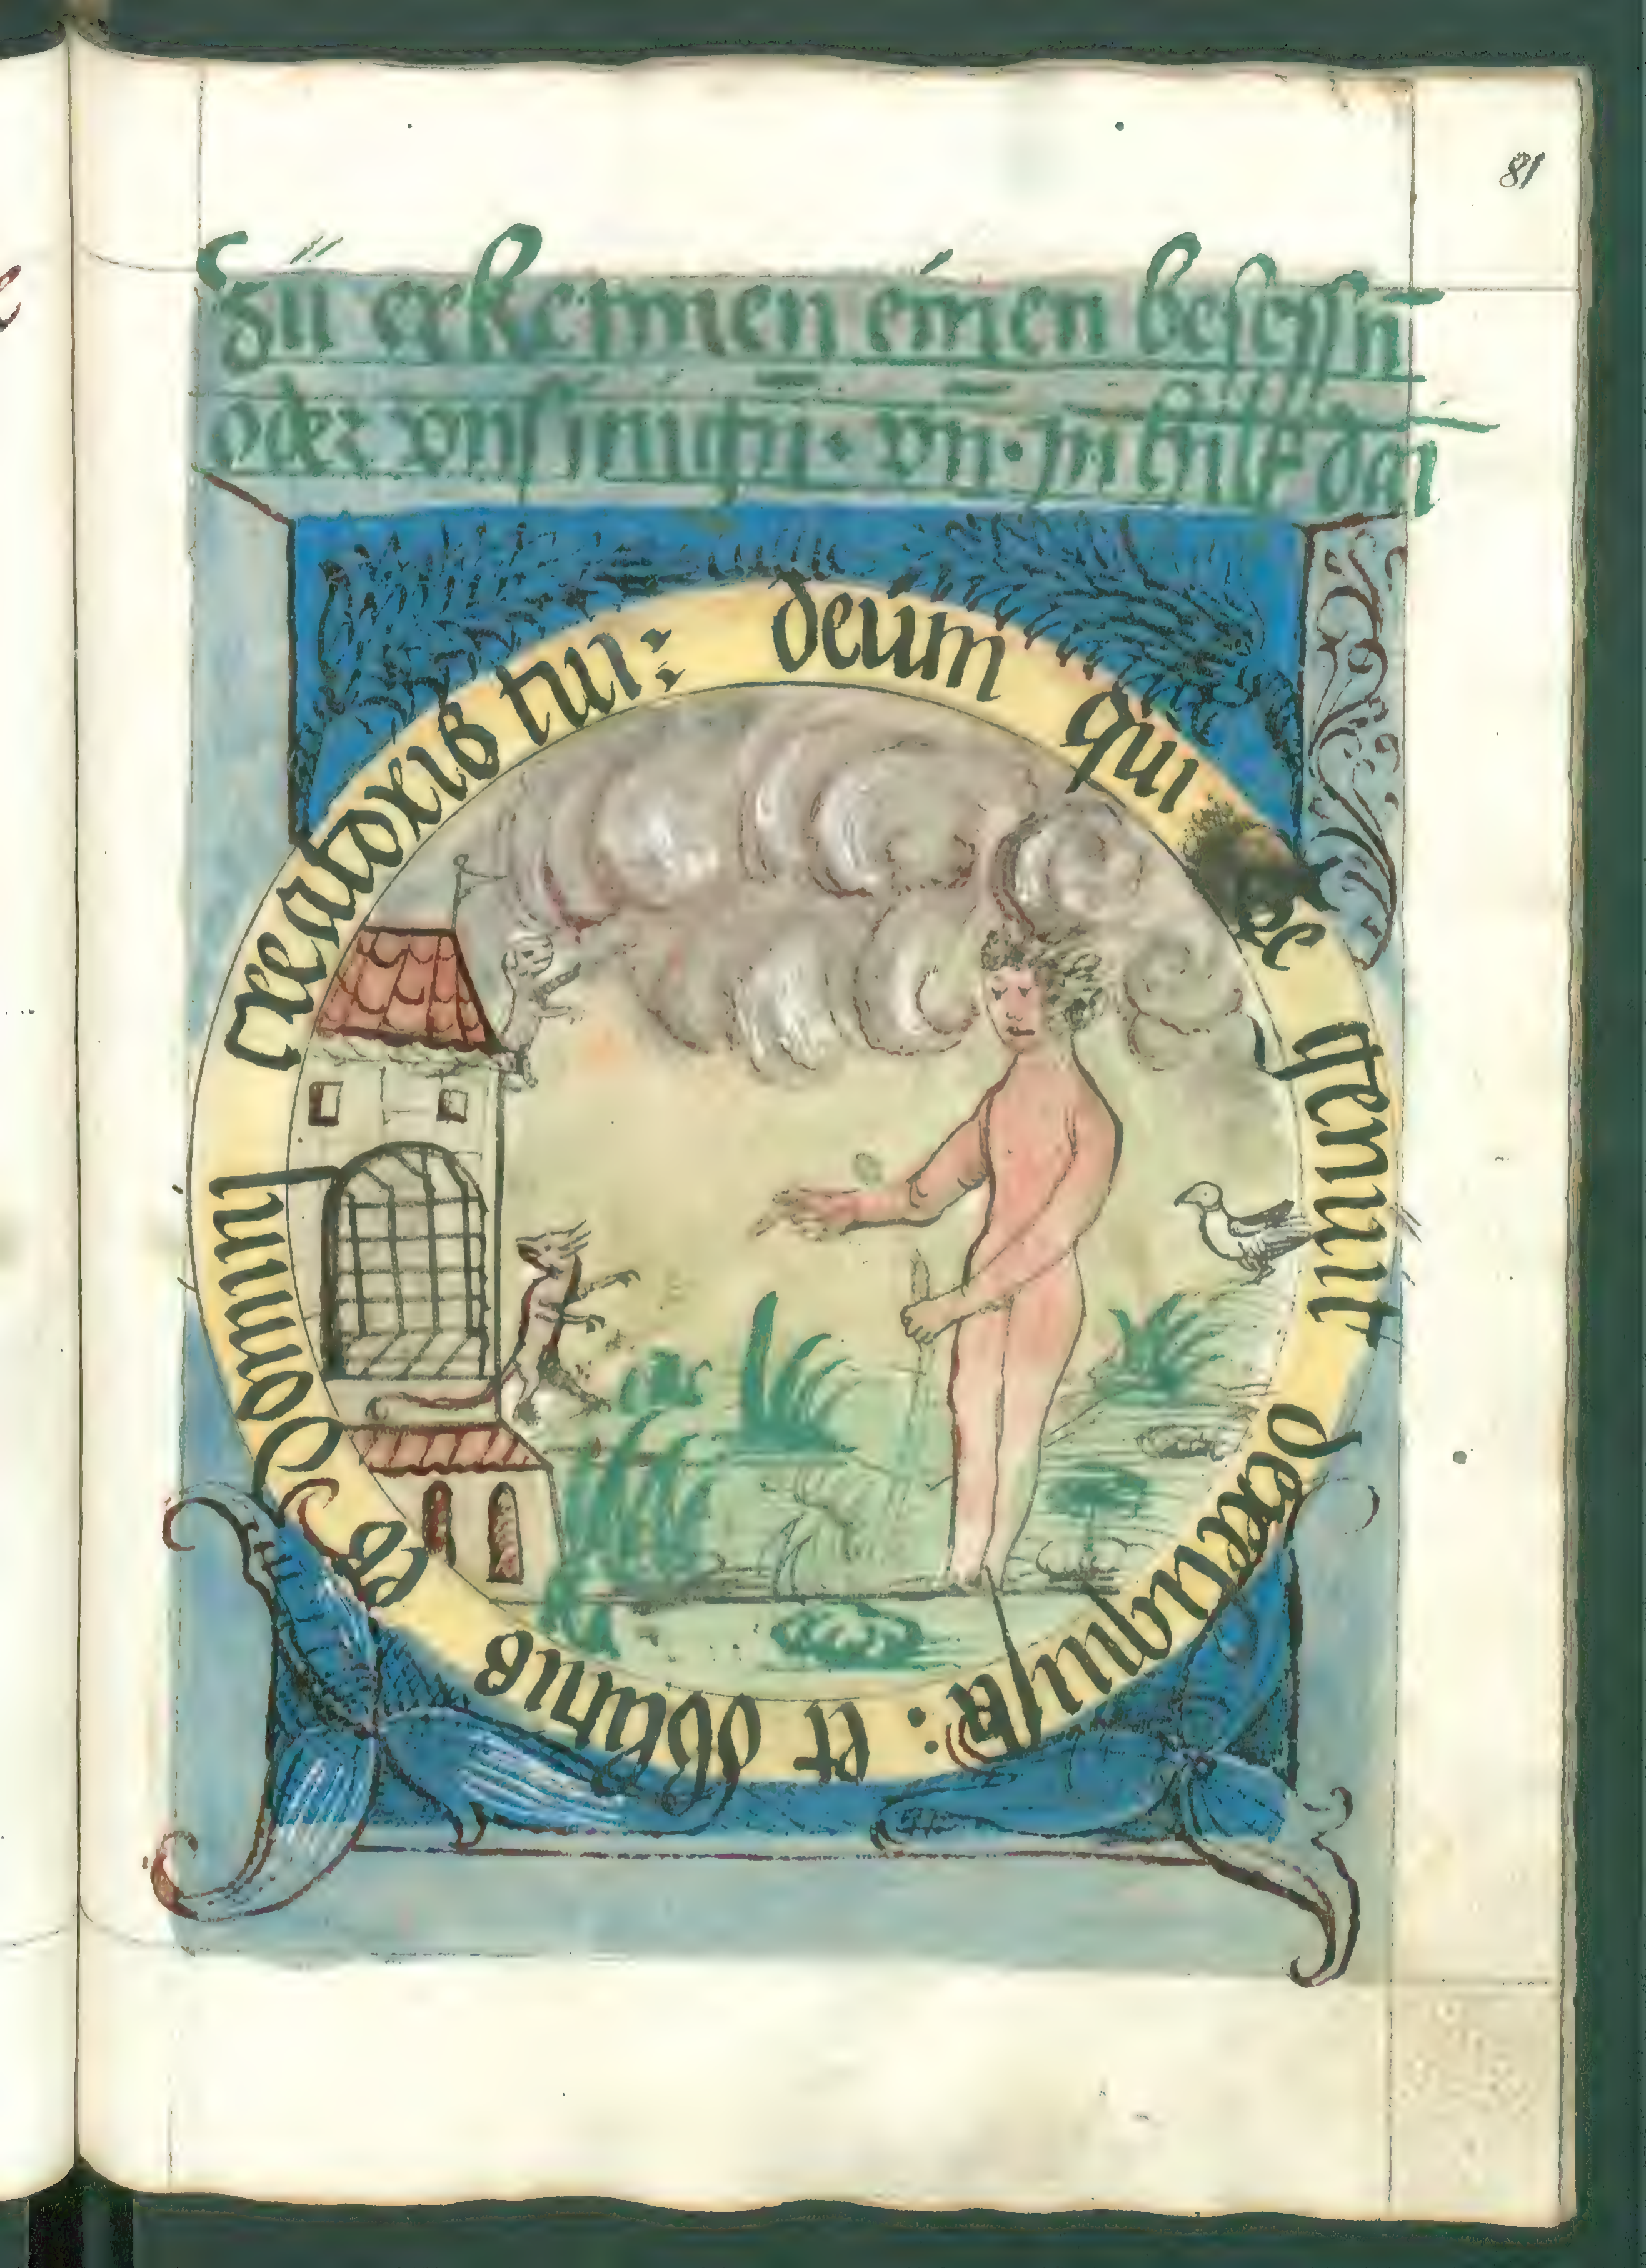 81
zü erkennen einen besessn̄
oder vnsinnign̄ · vn̄ · im hilff
deum qui te genuit dereliquisti : et oblitus es domini creatoris tui :